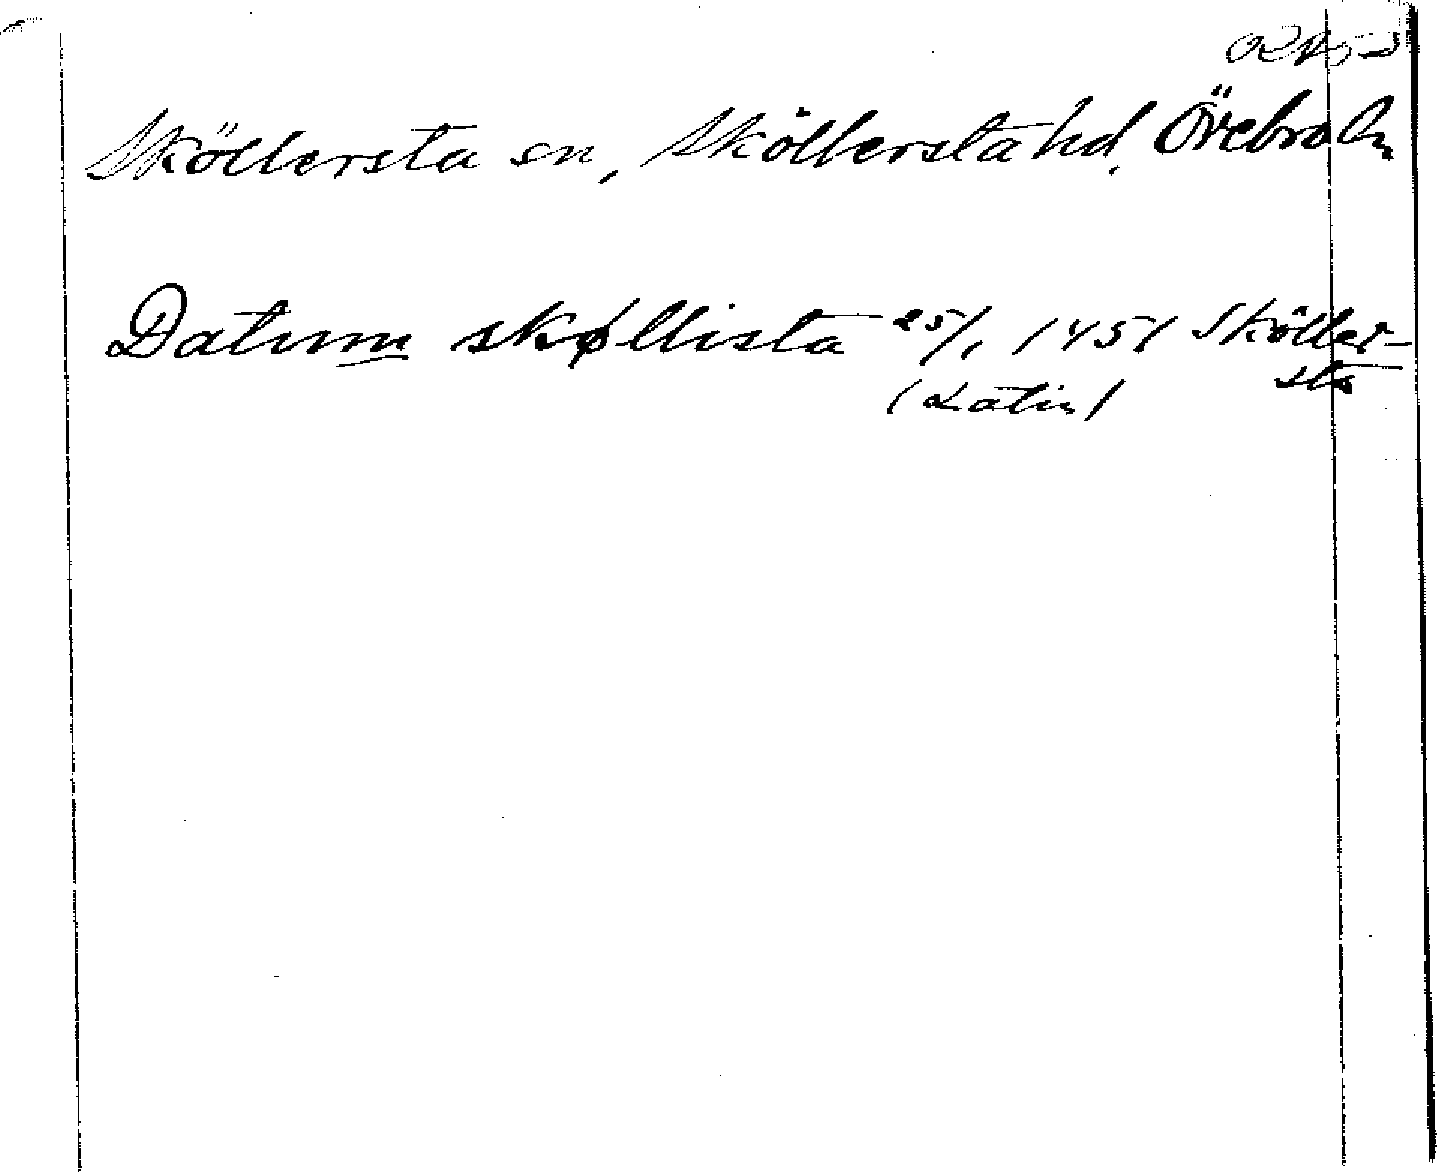 Sköllersta sn, Sköllersta hd, Örebro ln
Datum skøllista 25/1 1451 Sköller-
sta
(Latin)